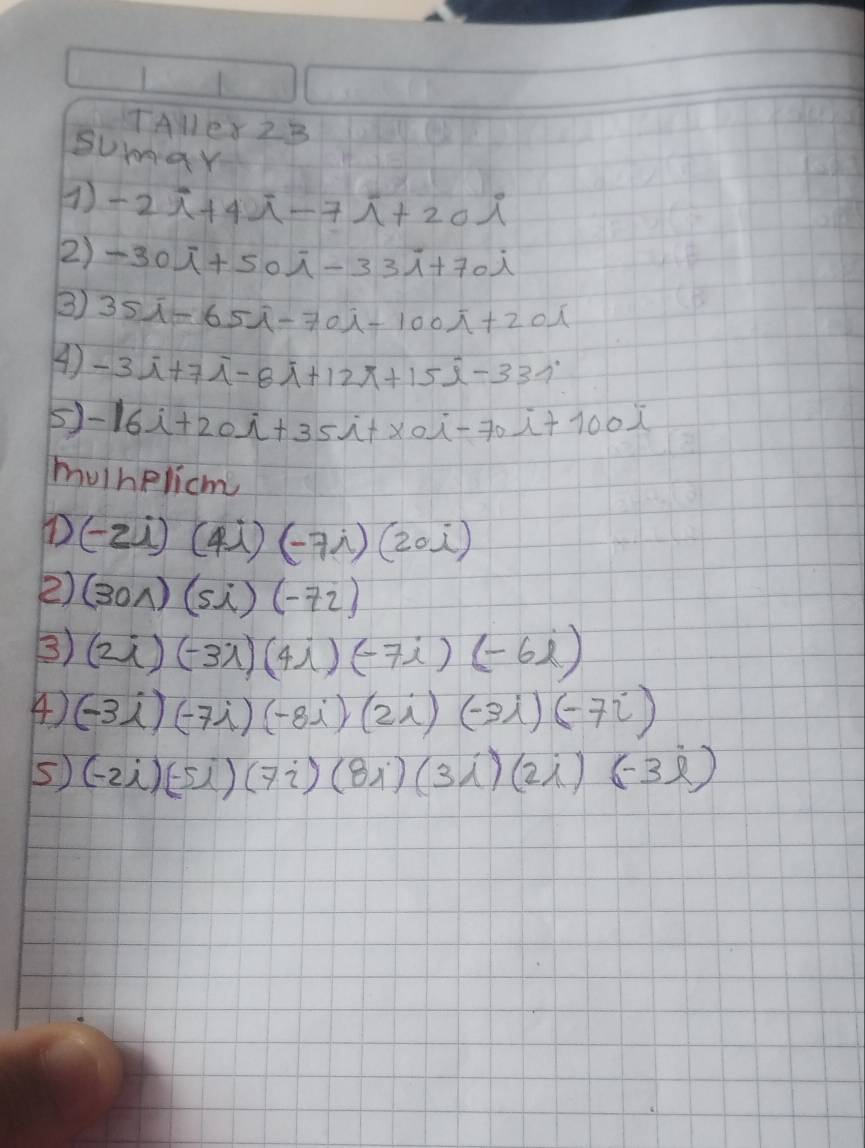 TAller 23
Sumar
1) -2i+4i-7i+20i
2) -30i+50i-33i+70i
3) 35i-65i-70i-100i+20i
4) -3i+7i-8i+12i+15i-33i
5) -16i+20i+35i+x0i-70i+100i
1) (-2i) (4i) (-7i) (20i)
2) (30i) (5i) (-7i)
3) (2i) (-3i) (4i) (-7i) (-6i)
4) (-3i) (-7i) (-8i) (2i) (-3i) (-7i)
5) (-2i) (-5i) (7i) (8i) (3i) (2i) (-3i)